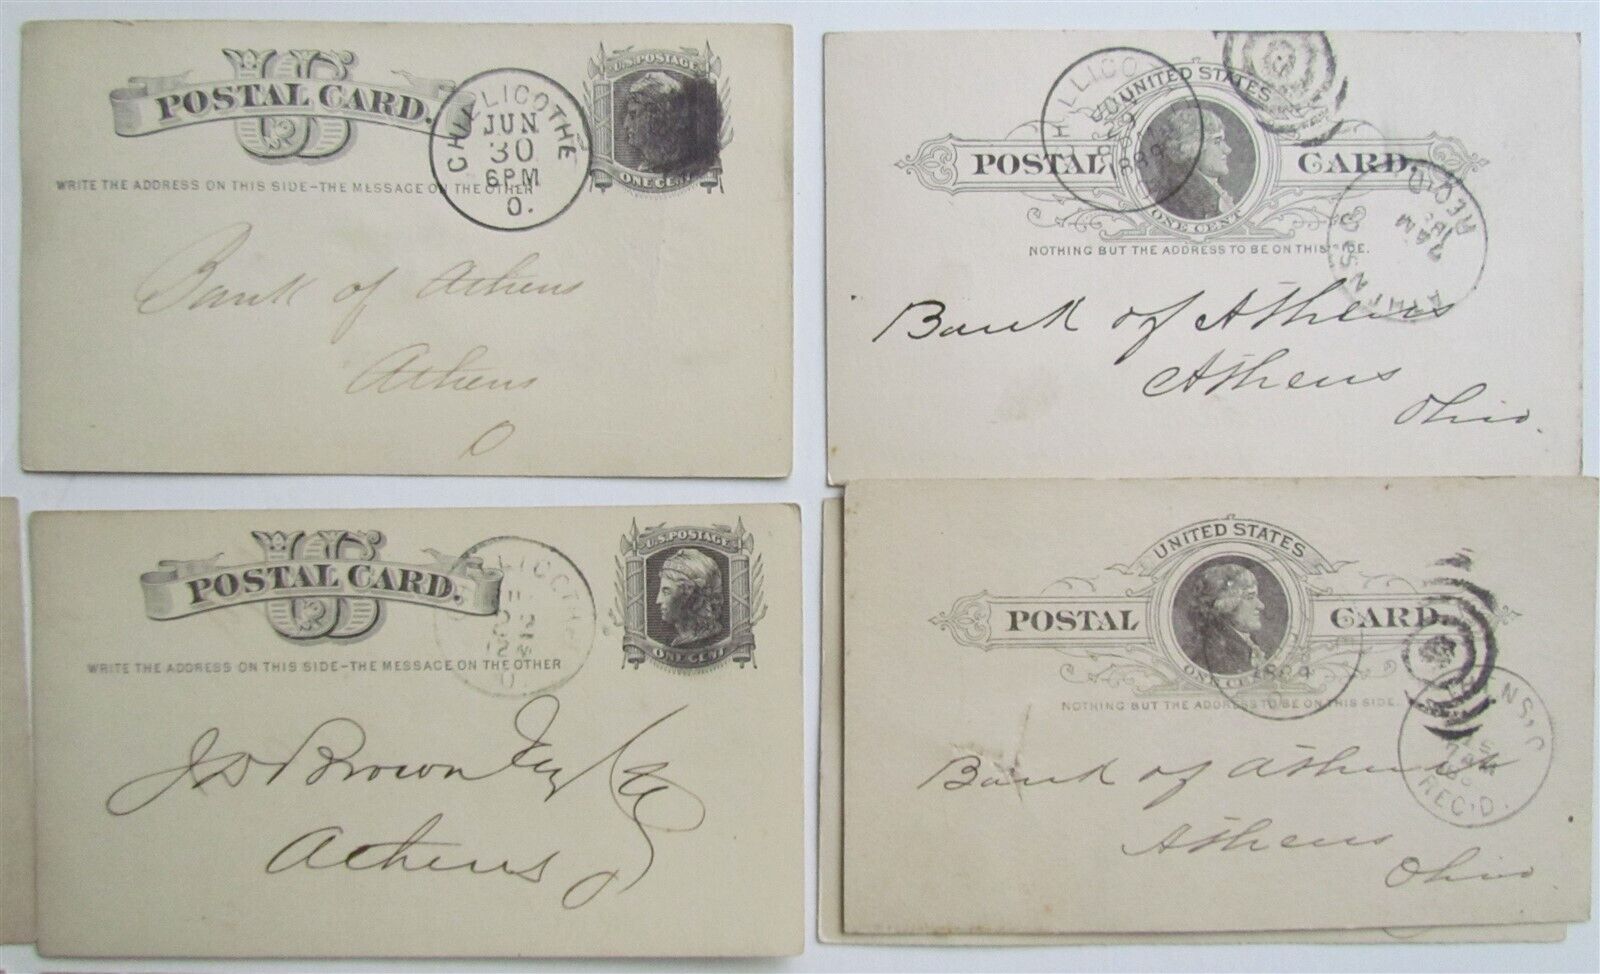 US
POSTAL CARD.
U.S. POSTAGE
ONE CENT
CHILLICOTHE
JUN
30
6PM
O.
WRITE THE ADDRESS ON THIS SIDE–THE MESSAGE ON THE OTHER
Bank of Athens
Athens
O
UNITED STATES
POSTAL CARD.
ONE CENT
NOTHING BUT THE ADDRESS TO BE ON THIS SIDE.
HILLICO
29
REC'D
Bank of Athens
Athens
Ohio.
US
POSTAL CARD.
U.S. POSTAGE
ONE CENT
O.
WRITE THE ADDRESS ON THIS SIDE–THE MESSAGE ON THE OTHER
J D Brown
Athens
O
UNITED STATES
POSTAL CARD.
ONE CENT
NOTHING BUT THE ADDRESS TO BE ON THIS SIDE.
REC'D.
Bank of Athens
Athens
Ohio